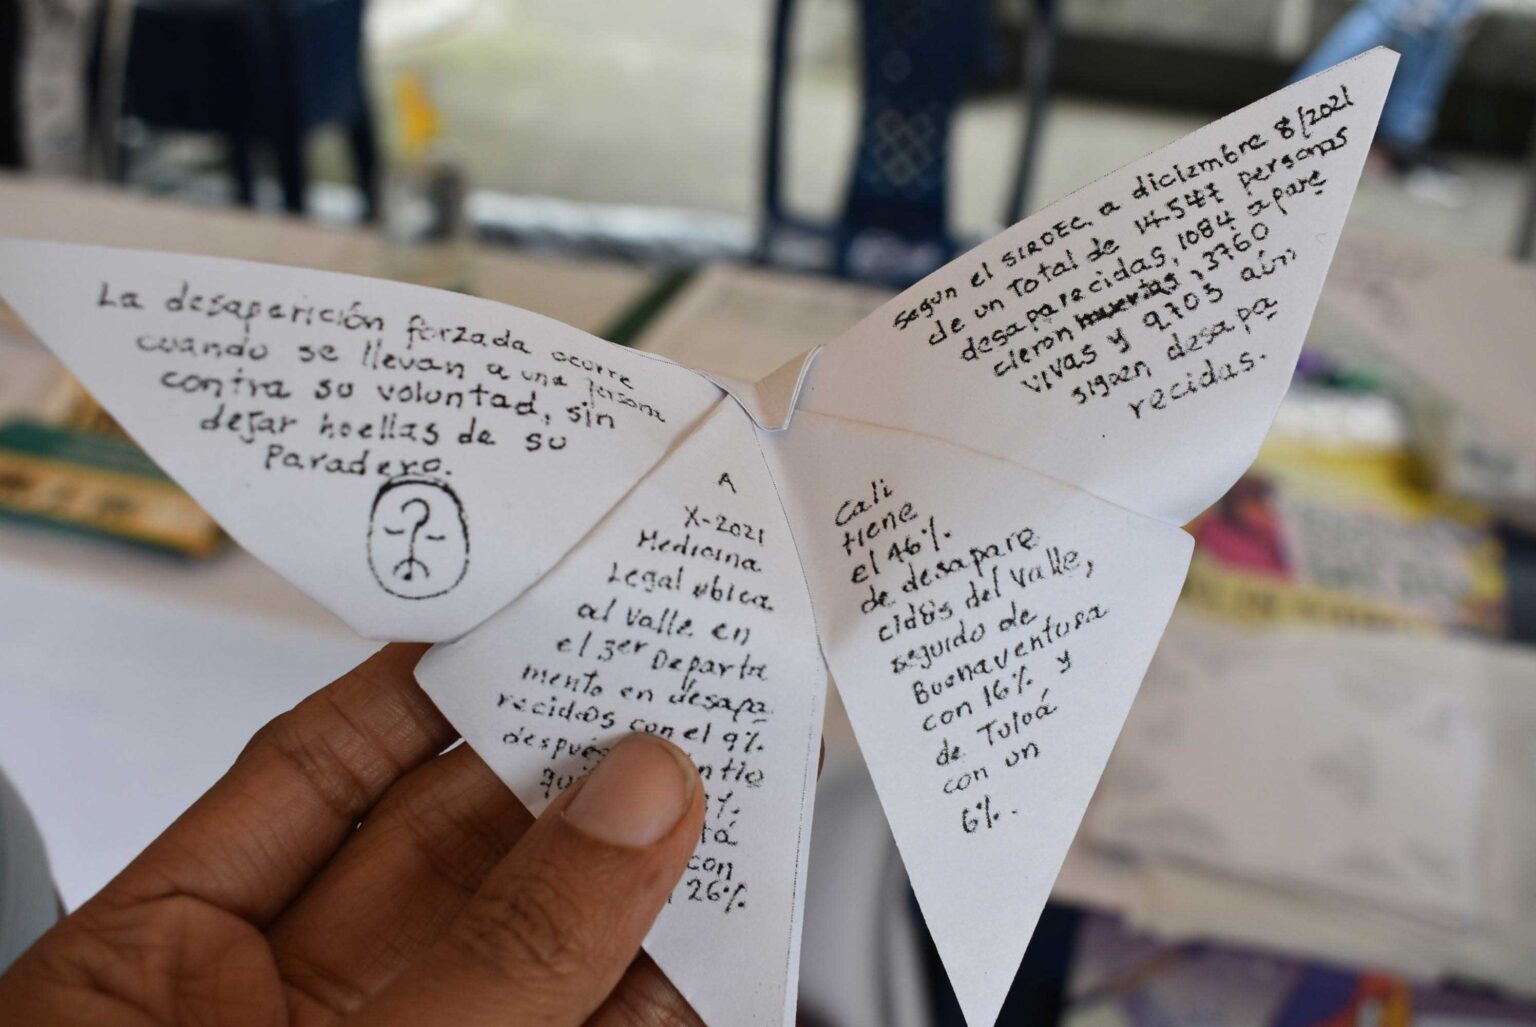 La desaperición forzada ocorre
cuando se llevan a una persona
contra su voluntad, sin
dejar hoellas de su
Paradero.
A
X-2021
Medicina
Legal ubica
al Valle en
el 3er Departa
mento en desapa
recid@s con el 9%
después
con
26%
Cali
tiene
el 46%
de desapare
cidos del Valle,
seguido de
Buenaventura
con 16% y
de Tuluá
con un
6%.
Segun el SIRDEC, a diciembre 8/2021
de un Total de 14.547 personas
desaparecidas, 1084 apare
cieron muertas, 3760
vivas y 9703 aún
siguen desapa
recidas.